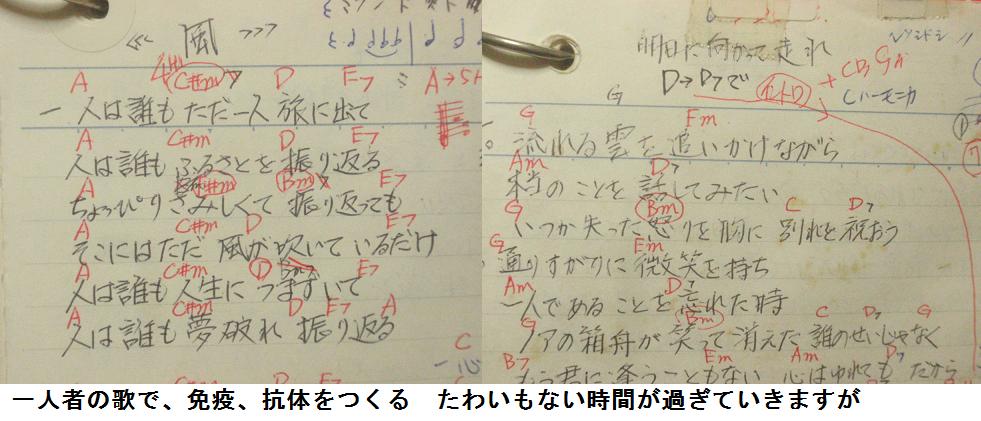 <<< 風 >>>
A C#m D E7 A→
一人は誰もただ一人旅に出て
A C#m D E7
人は誰もふるさとを振り返る
A F#m Bm E7
ちょっぴりさみしくて振り返っても
A C#m D E7
そこにはただ風が吹いているだけ
A C#m D E7
人は誰も人生につまずいて
A C#m D E7 A
人は誰も夢破れ振り返る
明日に向って走れ
D→D7で イントロ + CD
Cハーモニカ
G Em
流れる雲を追いかけながら
Am D7
本当のことを話してみたい
G Bm C D7
いつか失った怒りを胸に 別れを祝おう
G Em
通りすがりに微笑を持ち
Am D7
一人であることを忘れた時
G Bm C D7 G
ノアの箱舟が笑って消えた 誰のせいじゃなく
B7 Em Am D7
もう君に逢うこともない 心はゆれても だから
一人者の歌で、免疫、抗体をつくる　たわいもない時間が過ぎていきますが